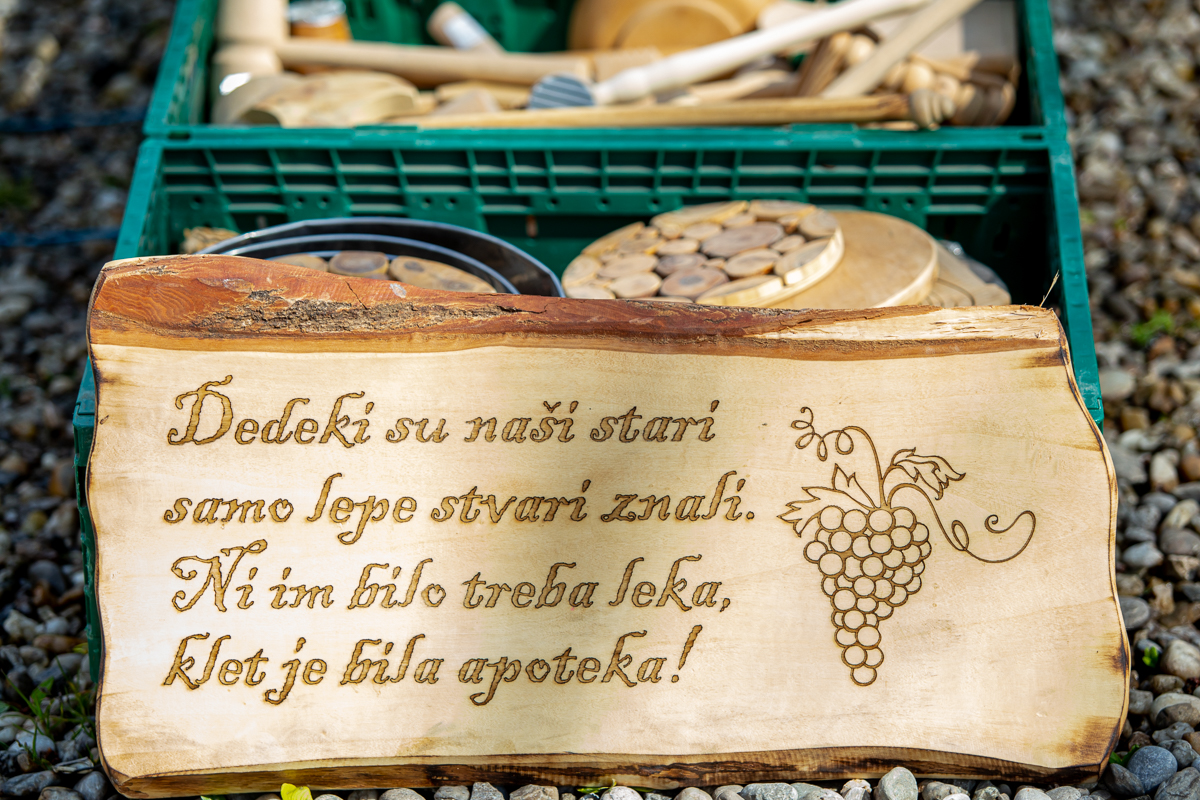 Dedeki su naši stari
samo lepe stvari znali.
Ni im bilo treba leka,
klet je bila apoteka!